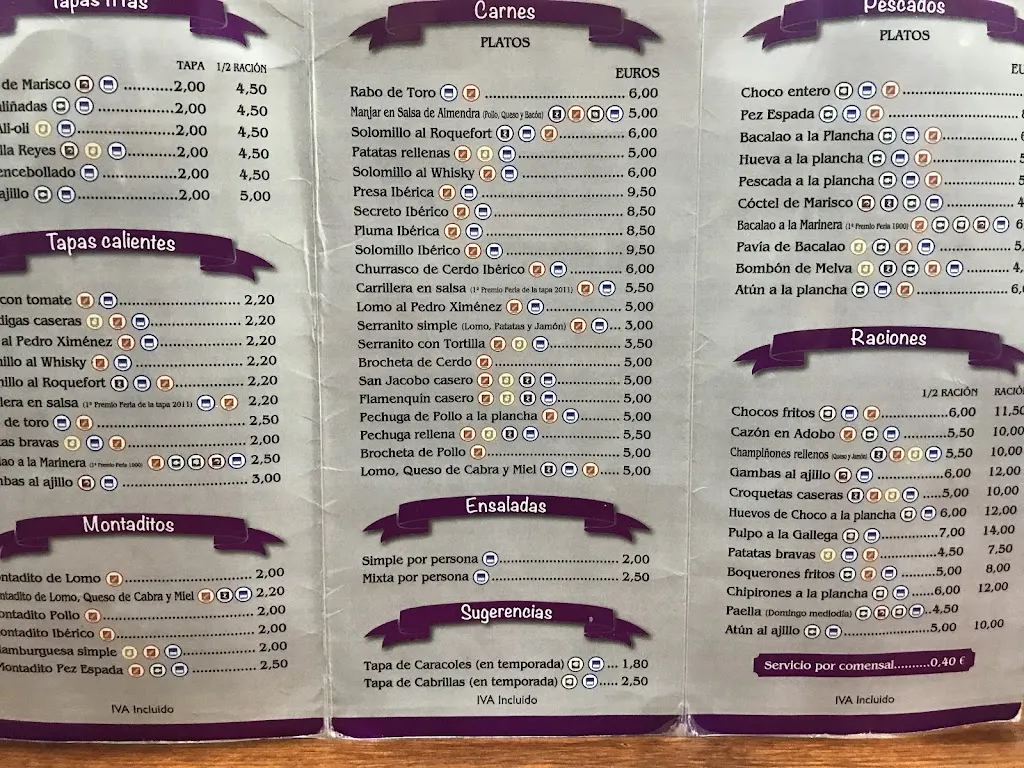 Tapas frías
TAPA 1/2 RACIÓN
de Marisco ..........2,00 4,50
aliñadas ..........2,00 4,50
Ali-oli ..........2,00 4,50
lla Reyes ..........2,00 4,50
encebollado ..........2,00 4,50
ajillo ..........2,00 5,00
Tapas calientes
con tomate .......... 2,20
digas caseras .......... 2,20
al Pedro Ximénez .......... 2,20
millo al Whisky .......... 2,20
millo al Roquefort .......... 2,20
llera en salsa (1ª Premio Feria de la tapa 2011) .... 2,20
de toro .......... 2,50
tas bravas .......... 2,00
lao a la Marinera (1ª Premio Feria 1900) 2,50
mbas al ajillo .......... 3,00
Montaditos
ontadito de Lomo .......... 2,00
ontadito de Lomo, Queso de Cabra y Miel 2,20
ontadito Pollo .......... 2,00
ontadito Ibérico .......... 2,00
Hamburguesa simple .......... 2,00
Montadito Pez Espada .......... 2,50
IVA Incluido
Carnes
PLATOS
EUROS
Rabo de Toro .......... 6,00
Manjar en Salsa de Almendra (Pollo, Queso y Bacón) 5,00
Solomillo al Roquefort .......... 6,00
Patatas rellenas .......... 5,00
Solomillo al Whisky .......... 6,00
Presa Ibérica .......... 9,50
Secreto Ibérico .......... 8,50
Pluma Ibérica .......... 8,50
Solomillo Ibérico .......... 9,50
Churrasco de Cerdo Ibérico .......... 6,00
Carrillera en salsa (1ª Premio Feria de la tapa 2011) .. 5,50
Lomo al Pedro Ximénez .......... 5,00
Serranito simple (Lomo, Patatas y Jamón) ... 3,00
Serranito con Tortilla .......... 3,50
Brocheta de Cerdo .......... 5,00
San Jacobo casero .......... 5,00
Flamenquín casero .......... 5,00
Pechuga de Pollo a la plancha .......... 5,00
Pechuga rellena .......... 5,50
Brocheta de Pollo .......... 5,00
Lomo, Queso de Cabra y Miel ..... 5,00
Ensaladas
Simple por persona .......... 2,00
Mixta por persona .......... 2,50
Sugerencias
Tapa de Caracoles (en temporada) ... 1,80
Tapa de Cabrillas (en temporada) ..... 2,50
IVA Incluido
Pescados
PLATOS
EU
Choco entero ..........
Pez Espada ..........
Bacalao a la Plancha ..........
Hueva a la plancha ..........
Pescada a la plancha ..........
Cóctel de Marisco ..........
Bacalao a la Marinera (1ª Premio Feria 1900) 6,
Pavía de Bacalao .......... 5,
Bombón de Melva .......... 4,
Atún a la plancha .......... 6,
Raciones
1/2 RACIÓN RACIÓ
Chocos fritos ..........6,00 11,50
Cazón en Adobo ..........5,50 10,00
Champlñones rellenos (Queso y Jamón) 5,50 10,00
Gambas al ajillo ..........6,00 12,00
Croquetas caseras .....5,00 10,00
Huevos de Choco a la plancha 6,00 12,00
Pulpo a la Gallega ..........7,00 14,00
Patatas bravas ..........4,50 7,50
Boquerones fritos ..........5,00 8,00
Chipirones a la plancha ......6,00 12,00
Paella (Domingo mediodía) ..4,50
Atún al ajillo ..........5,00 10,00
Servicio por comensal..........0,40 €
IVA Incluido